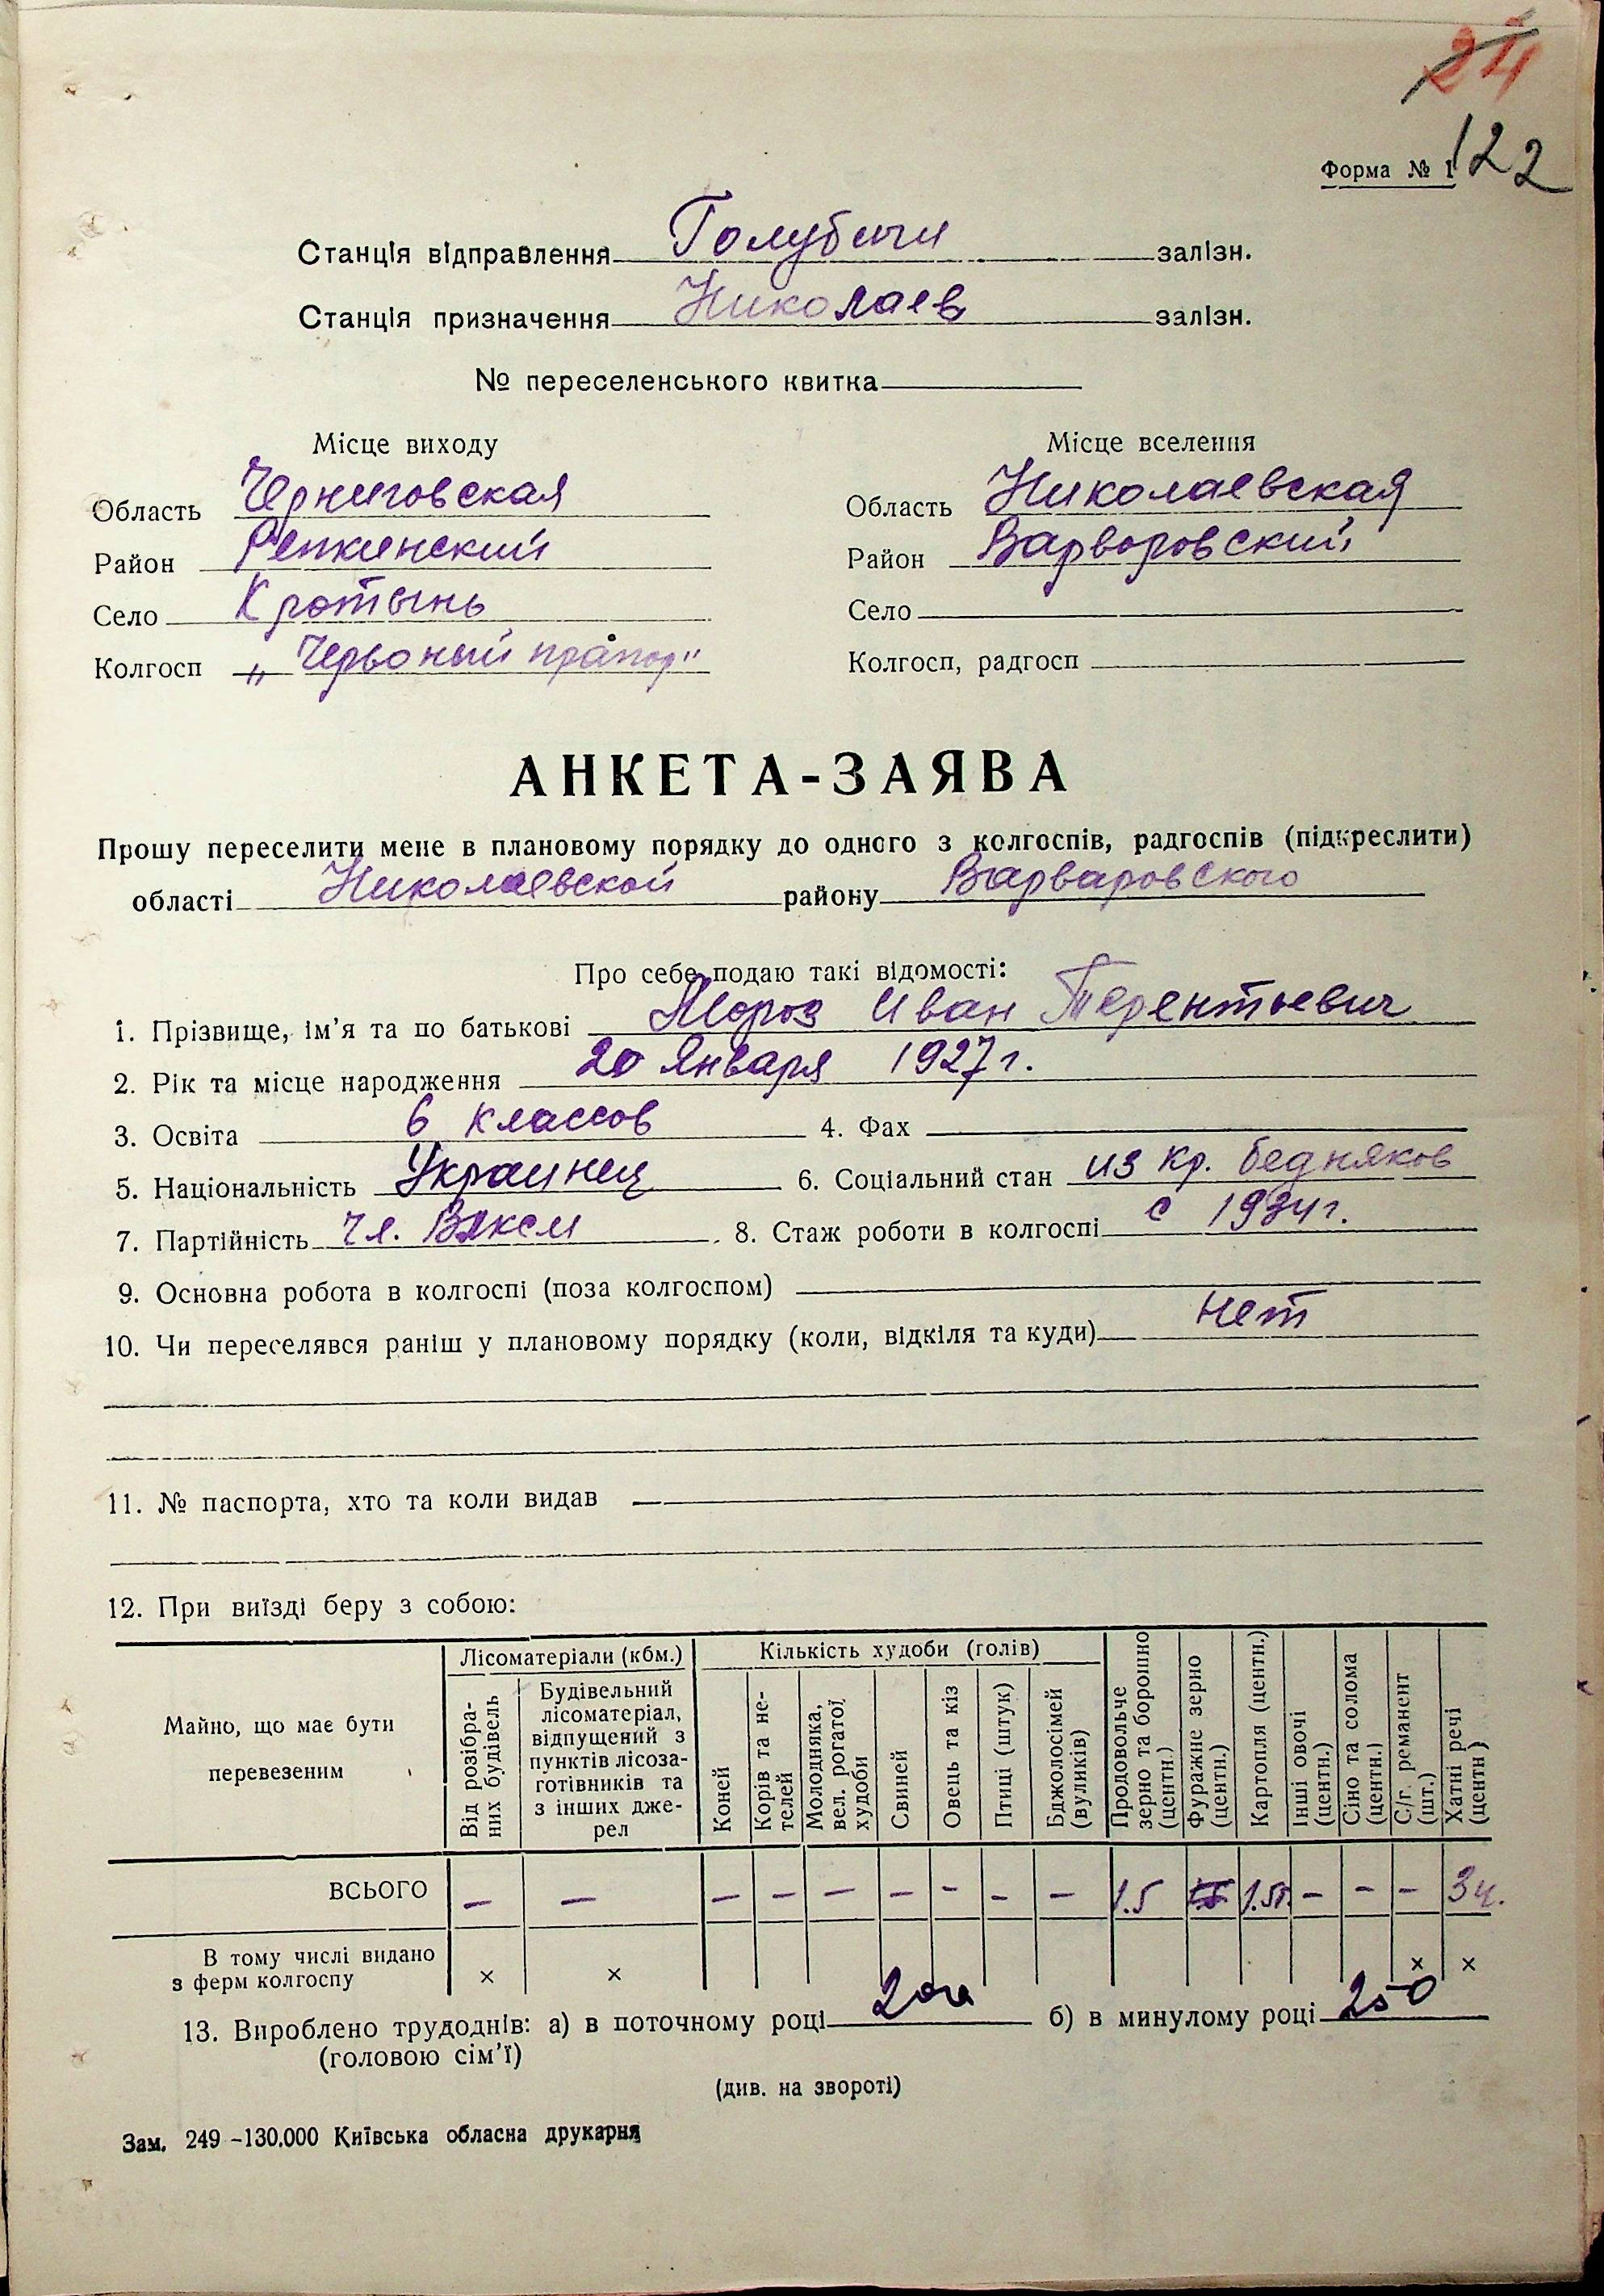 24
122
Форма № 1
Станція відправлення Голубичи залізн.
Станція призначення Николаев залізн.
№ переселенського квитка
Місце виходу
Місце вселення
Область Черниговская
Область Николаевская
Район Репкинский
Район Варворовский
Село Кротынь
Село
Колгосп „Червоный прапор"
Колгосп, радгосп
АНКЕТА-ЗАЯВА
Прошу переселити мене в плановому порядку до одного з колгоспів, радгоспів (підкреслити)
області Николаевской району Варваровского
Про себе подаю такі відомості:
1. Прізвище, ім'я та по батькові Мороз Иван Терентьевич
2. Рік та місце народження 20 января 1927 г.
3. Освіта 6 классов 4. Фах
5. Національність Украинец 6. Соціальний стан из кр. бедняков
7. Партійність чл. ВЛКСМ 8. Стаж роботи в колгоспі с 1934 г.
9. Основна робота в колгоспі (поза колгоспом)
10. Чи переселявся раніш у плановому порядку (коли, відкіля та куди) нет
11. № паспорта, хто та коли видав
12. При виїзді беру з собою:
Майно, що має бути
перевезеним
Лісоматеріали (кбм.)
Від розібра-
них будівель
Будівельний
лісоматеріал,
відпущений з
пунктів лісоза-
готівників та
з інших дже-
рел
Кількість худоби (голів)
Коней
Корів та не-
телей
Молодняка,
вел. рогатої
худоби
Свиней
Овець та кіз
Птиці (штук)
Бджолосімей
(вуликів)
Продовольче
зерно та борошно
(центн.)
Фуражне зерно
(центн.)
Картопля (центн.)
Інші овочі
(центн.)
Сіно та солома
(центн.)
С/г. реманент
(шт.)
Хатні речі
(центн)
ВСЬОГО — — — — — — — — — 1.5 1.5т. — — — 3ц.
В тому числі видано
з ферм колгоспу × × × ×
13. Вироблено трудоднів: а) в поточному році 200 б) в минулому році 250
(головою сім'ї)
(див. на звороті)
Зам. 249 –130.000 Київська обласна друкарня